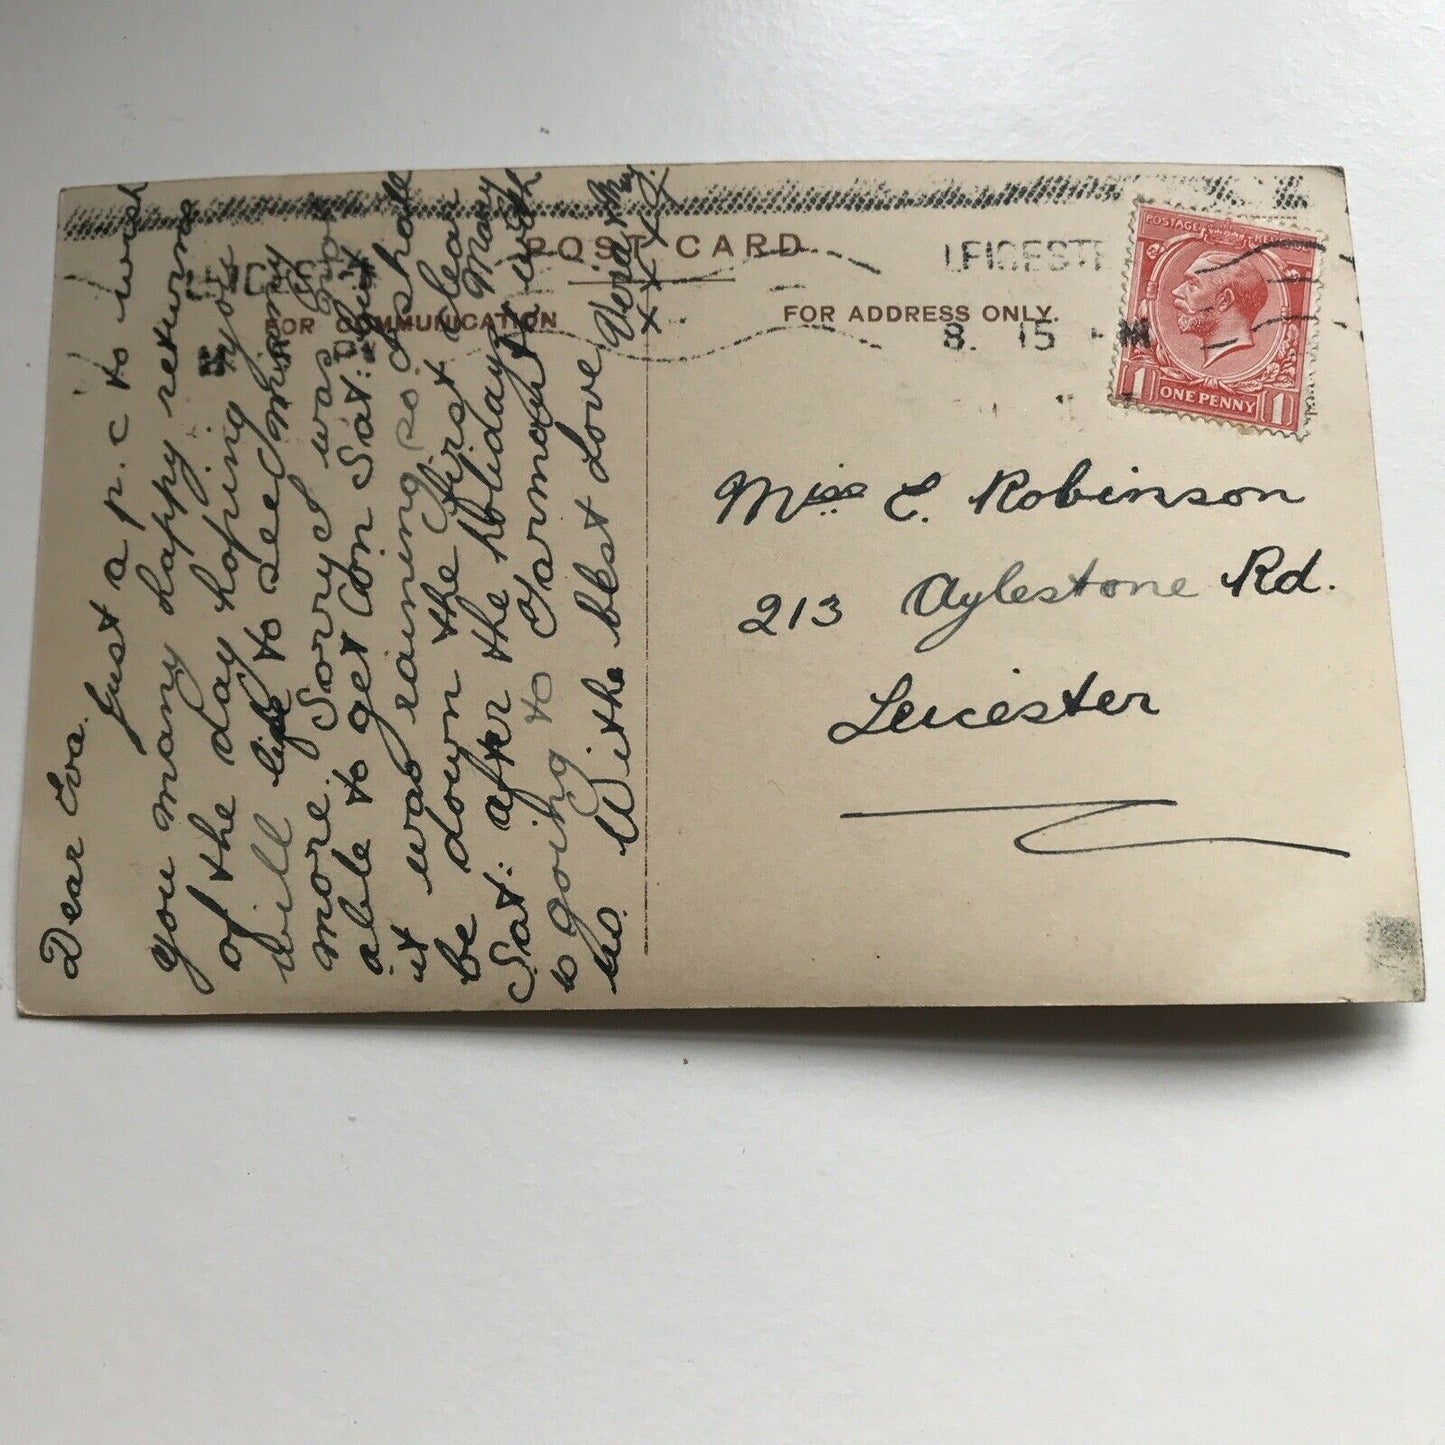 POST CARD
FOR COMMUNICATION
FOR ADDRESS ONLY.
LEICESTE
8. 15 M
POSTAGE
1 ONE PENNY 1
Dear Eva.
Just a p.c to wish
you many happy returns
of the day hoping you
will to see many
more. Sorry I was not
able to get on Sat: but
it was raining so I shall
be down the first clear
Sat: after the holidays Mary
is going to Yarmouth with
us. With best love
Vera & May
x x x x
Miss E. Robinson
213 Aylestone Rd.
Leicester